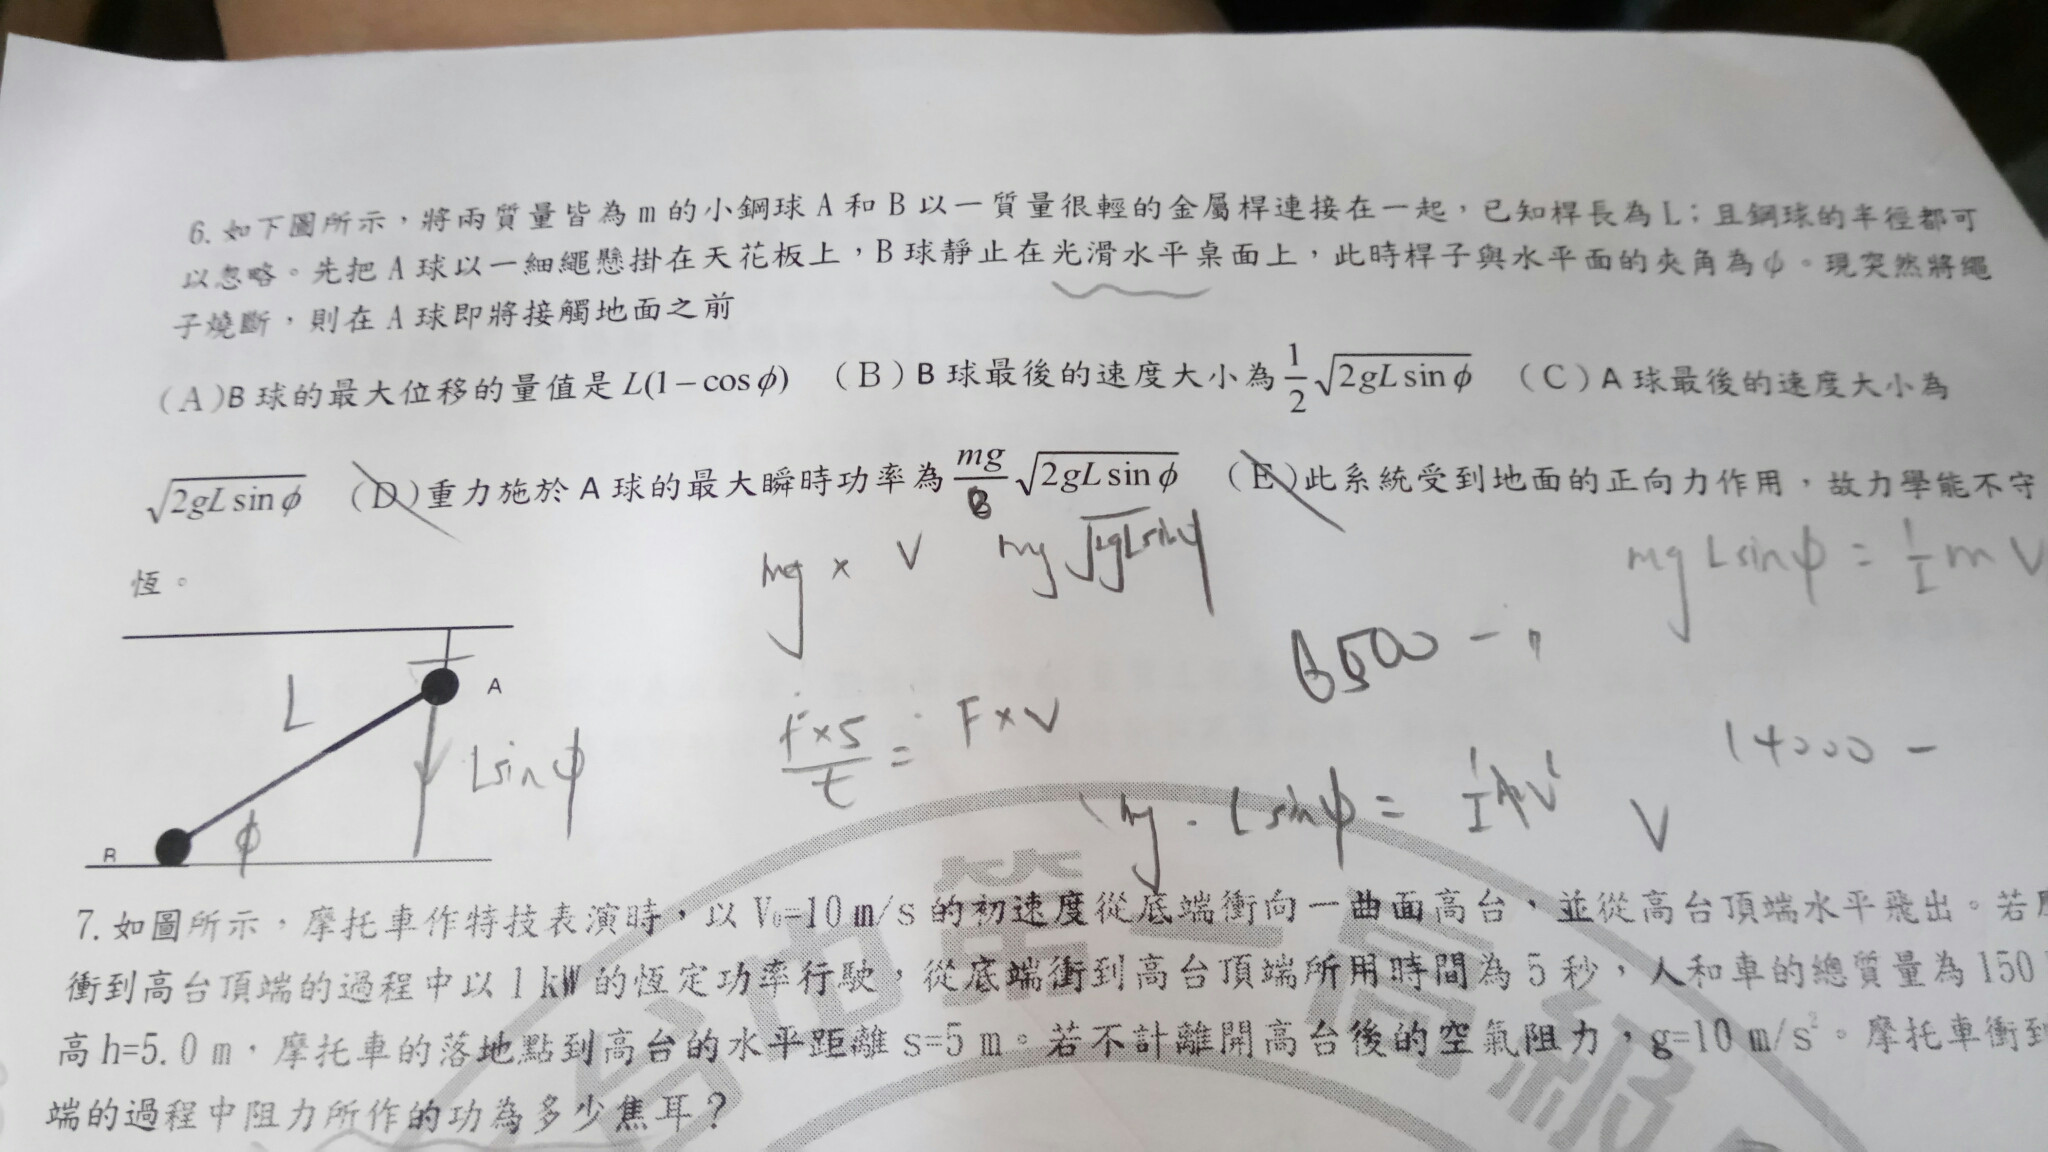 6.如下圖所示，將兩質量皆為m的小鋼球A和B以一質量很輕的金屬桿連接在一起，已知桿長為L；且鋼球的半徑都可
以忽略。先把A球以一細繩懸掛在天花板上，B球靜止在光滑水平桌面上，此時桿子與水平面的夾角為φ。現突然將繩
子燒斷，則在A球即將接觸地面之前
(A)B球的最大位移的量值是L(1-cosφ) (B)B球最後的速度大小為1/2√(2gL sinφ) (C)A球最後的速度大小為
√(2gL sinφ) (D)重力施於A球的最大瞬時功率為mg/2√(2gL sinφ) (E)此系統受到地面的正向力作用，故力學能不守
恆。
mg × V mg
mg Lsinφ = m V
6500 -
A
L
Lsinφ
F×S/t = F×V
14000 -
mg · Lsinφ = V
B
φ
7.如圖所示，摩托車作特技表演時，以V₀=10m/s的初速度從底端衝向一曲面高台，並從高台頂端水平飛出。若
衝到高台頂端的過程中以1kW的恆定功率行駛，從底端衝到高台頂端所用時間為5秒，人和車的總質量為150
高h=5.0m，摩托車的落地點到高台的水平距離s=5m。若不計離開高台後的空氣阻力，g=10m/s²。摩托車衝到
端的過程中阻力所作的功為多少焦耳？